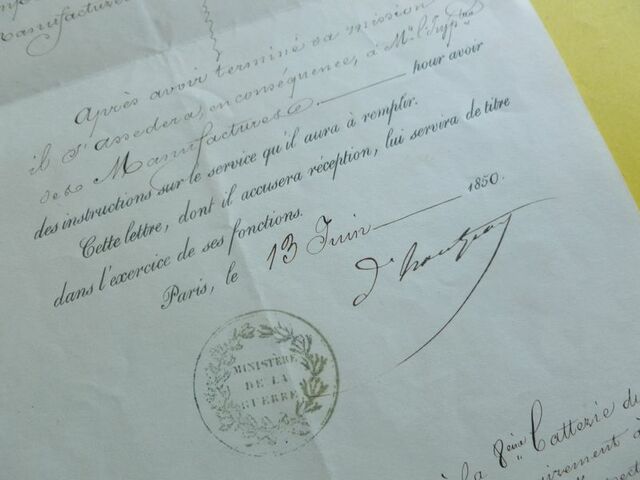 Manufactures
Après avoir terminé sa mission
il s'
en conséquence, à Mr l'Insp.teur
de la Manufactures pour avoir
des instructions sur le service qu'il aura à remplir.
Cette lettre, dont il accusera réception, lui servira de titre
dans l'exercice de ses fonctions.
Paris, le 13 Juin 1850.
MINISTÈRE
DE LA
GUERRE
à la 8ème Batterie du